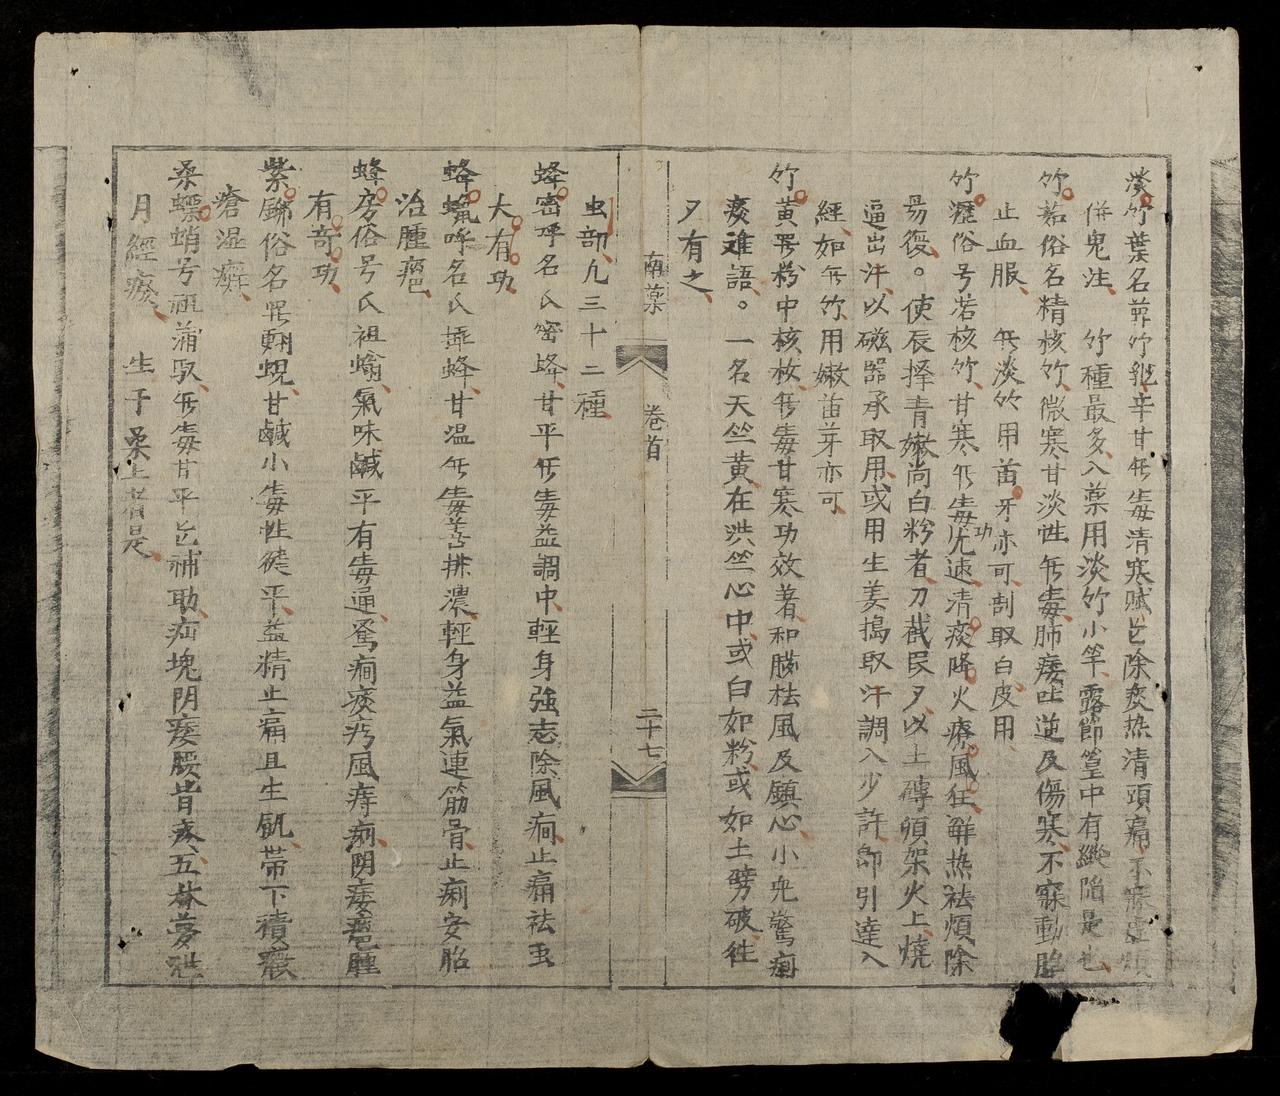 淡竹葉名草竹𥯉辛甘無毒清寒賦㠯除痰热清頭痛不寐虛煩
併鬼注 竹種最多入薬用淡竹小竿露節篁中有縱陷是也
竹茹俗名精核竹微寒甘淡性無毒肺痿吐逆及傷寒不寐動胎
止血服 無淡竹用苗牙亦可刮取白皮用
竹瀝俗号若核竹甘寒無毒功尤速清痰降火療風狂解热祛煩除
昜復。使辰擇青嫩尚白粉者刀截良夕以土磚傾架火上燒
逼出汗以磁器承取用或用生姜搗取汗調入少許即引達入
經如無竹用嫩苗芽亦可
竹黄罢粉中核枚無毒甘寒功效著和臓祛風及鎮心小兒驚癇
痰难語。一名天竺黄在洪竺心中或白如粉或如土劈破往
夕有之
南薬 卷首 二十七
虫部凢三十二種
蜂密呼名氏密蜂甘平無毒益調中輕身強志除風癎止痛祛虫
大有功
蜂蝋呼名氏㨂蜂甘温無毒善排濃輕身益氣連筋骨止痢安胎
治腫瘡
蜂房俗号氏祖螉氣味鹹平有毒通蚤癎痰丐風痔痢阴痿瘡腫
有奇功
紫鉚俗名罢翾蜆甘鹹小毒性徒平益精止痛且生肌帶下積聚
瘡湿癬
桑螵蛸号祖蒲馭無毒甘平㠯補助疝塊阴痿腰背疼五淋夢泄
月經療 生于桒上者是